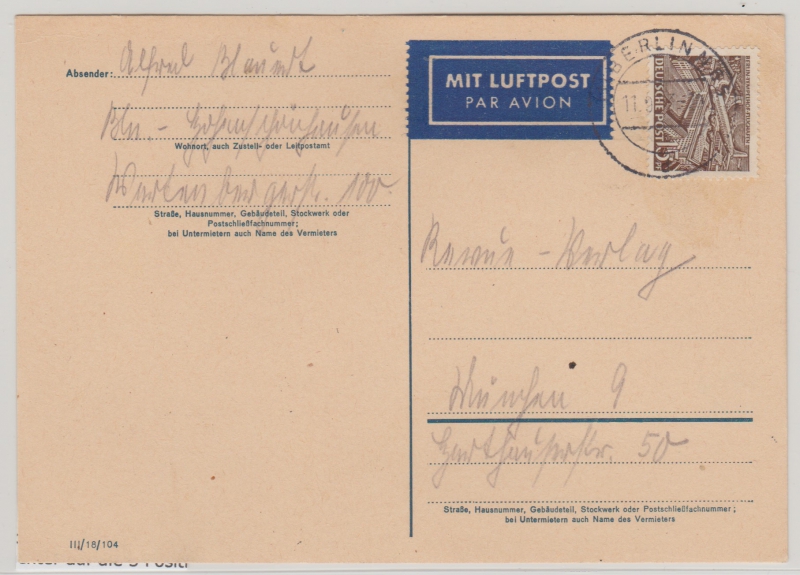 Absender: Alfred
Bln.-Hohenschönhausen
Wohnort, auch Zustell- oder Leitpostamt
Wartenbergerstr. 100.
Straße, Hausnummer, Gebäudeteil, Stockwerk oder
Postschließfachnummer;
bei Untermietern auch Name des Vermieters
III/18/104
MIT LUFTPOST
PAR AVION
BERLIN
11.
DEUTSCHE POST
15
Revue-Verlag
München 9
Harthauserstr. 50
Straße, Hausnummer, Gebäudeteil, Stockwerk oder Postschließfachnummer;
bei Untermietern auch Name des Vermieters
auf die 5 Positi